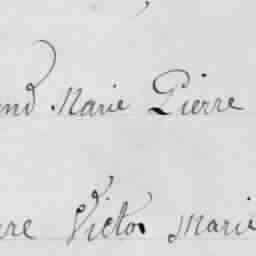 and Marie Pierre
re Victor Marie